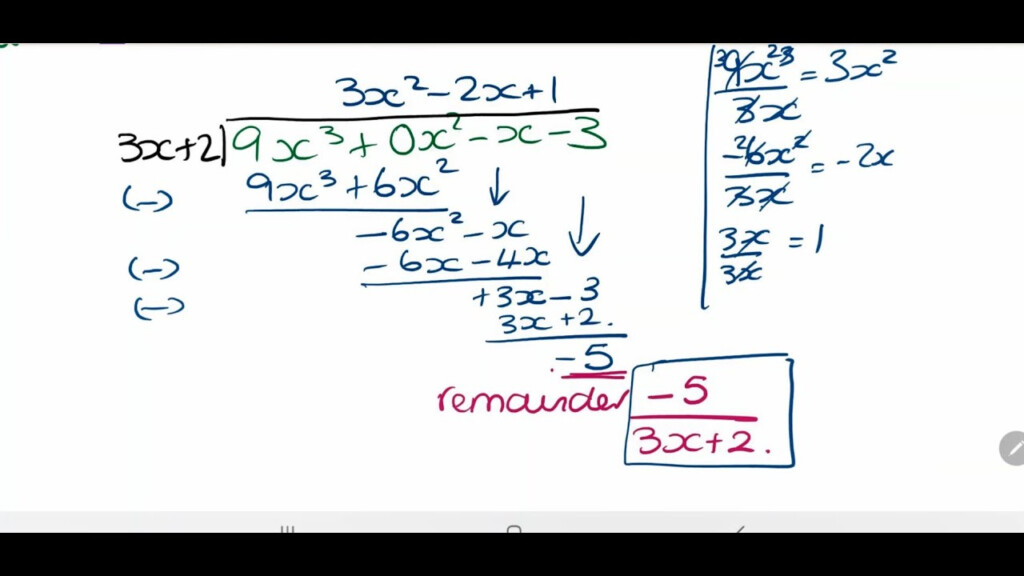 3x² - 2x + 1
3x+2 9x³ + 0x² - x - 3
(-) 9x³ + 6x²
-6x² - x
(-) -6x - 4x
(-) +3x - 3
3x + 2.
-5
remainder -5
3x+2.
9x³ = 3x²
3x
-6x² = -2x
3x
3x = 1
3x